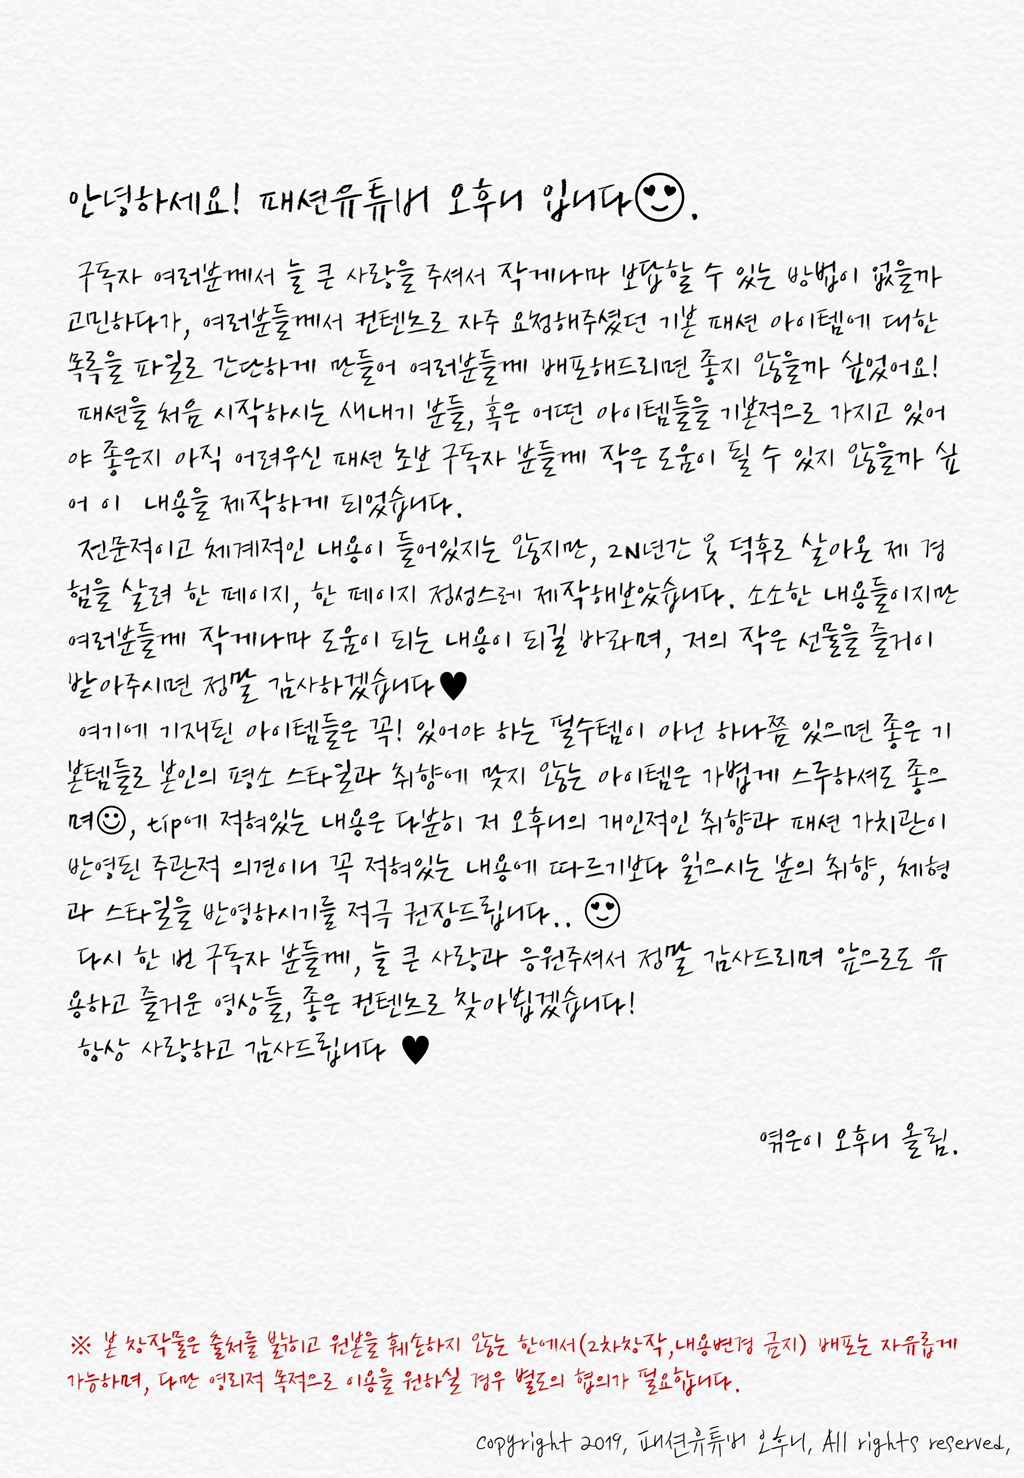 안녕하세요! 패션유튜버 오후니 입니다😍.
구독자 여러분께서 늘 큰 사랑을 주셔서 작게나마 보답할 수 있는 방법이 없을까
고민하다가, 여러분들께서 컨텐츠로 자주 요청해주셨던 기본 패션 아이템에 대한
목록을 파일로 간단하게 만들어 여러분들께 배포해드리면 좋지 않을까 싶었어요!
패션을 처음 시작하시는 새내기 분들, 혹은 어떤 아이템들을 기본적으로 가지고 있어
야 좋은지 아직 어려우신 패션 초보 구독자 분들께 작은 도움이 될 수 있지 않을까 싶
어 이 내용을 제작하게 되었습니다.
전문적이고 체계적인 내용이 들어있지는 않지만, 2N년간 옷 덕후로 살아온 제 경
험을 살려 한 페이지, 한 페이지 정성스레 제작해보았습니다. 소소한 내용들이지만
여러분들께 작게나마 도움이 되는 내용이 되길 바라며, 저의 작은 선물을 즐거이
받아주시면 정말 감사하겠습니다♥
여기에 기재된 아이템들은 꼭! 있어야 하는 필수템이 아닌 하나쯤 있으면 좋은 기
본템들로 본인의 평소 스타일과 취향에 맞지 않는 아이템은 가볍게 스루하셔도 좋으
며☺, tip에 적혀있는 내용은 다분히 저 오후니의 개인적인 취향과 패션 가치관이
반영된 주관적 의견이니 꼭 적혀있는 내용에 따르기보다 읽으시는 분의 취향, 체형
과 스타일을 반영하시기를 적극 권장드립니다.. 😍
다시 한 번 구독자 분들께, 늘 큰 사랑과 응원주셔서 정말 감사드리며 앞으로도 유
용하고 즐거운 영상들, 좋은 컨텐츠로 찾아뵙겠습니다!
항상 사랑하고 감사드립니다 ♥
엮은이 오후니 올림.
※ 본 창작물은 출처를 밝히고 원본을 훼손하지 않는 한에서(2차창작,내용변경 금지) 배포는 자유롭게
가능하며, 다만 영리적 목적으로 이용을 원하실 경우 별도의 협의가 필요합니다.
copyright 2019, 패션유튜버 오후니, All rights reserved,